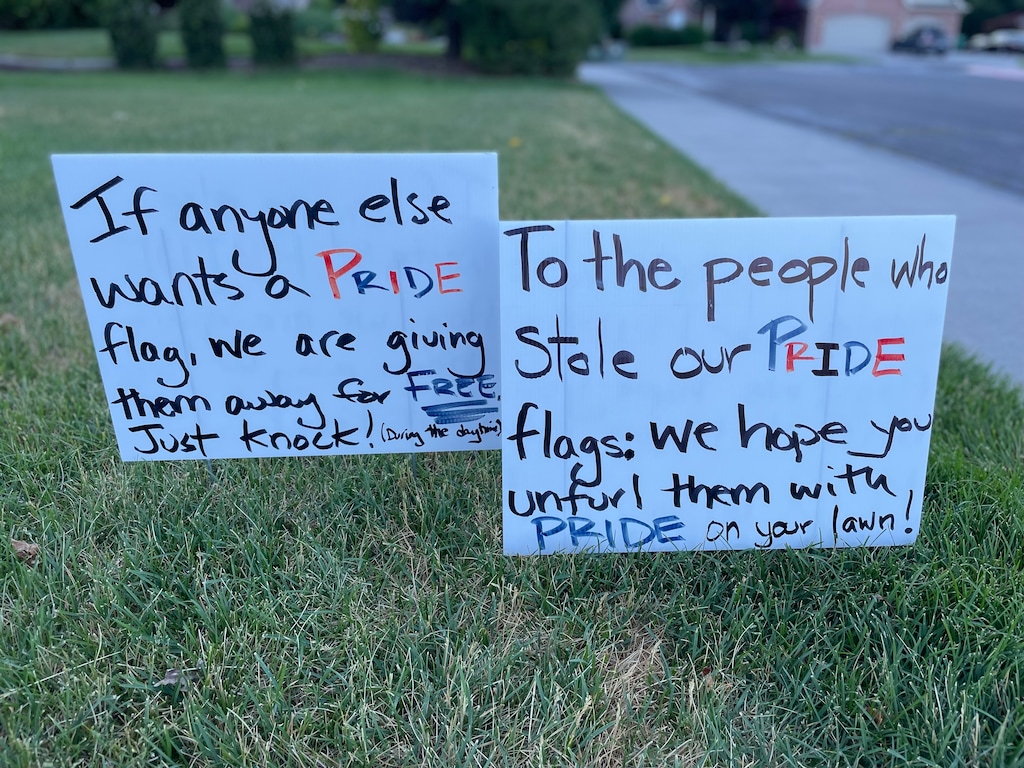 If anyone else
wants a PRIDE
flag, we are giving
them away for FREE.
Just knock! (During the daytime)
To the people who
Stole our PRIDE
flags: We hope you
unfurl them with
PRIDE on your lawn!